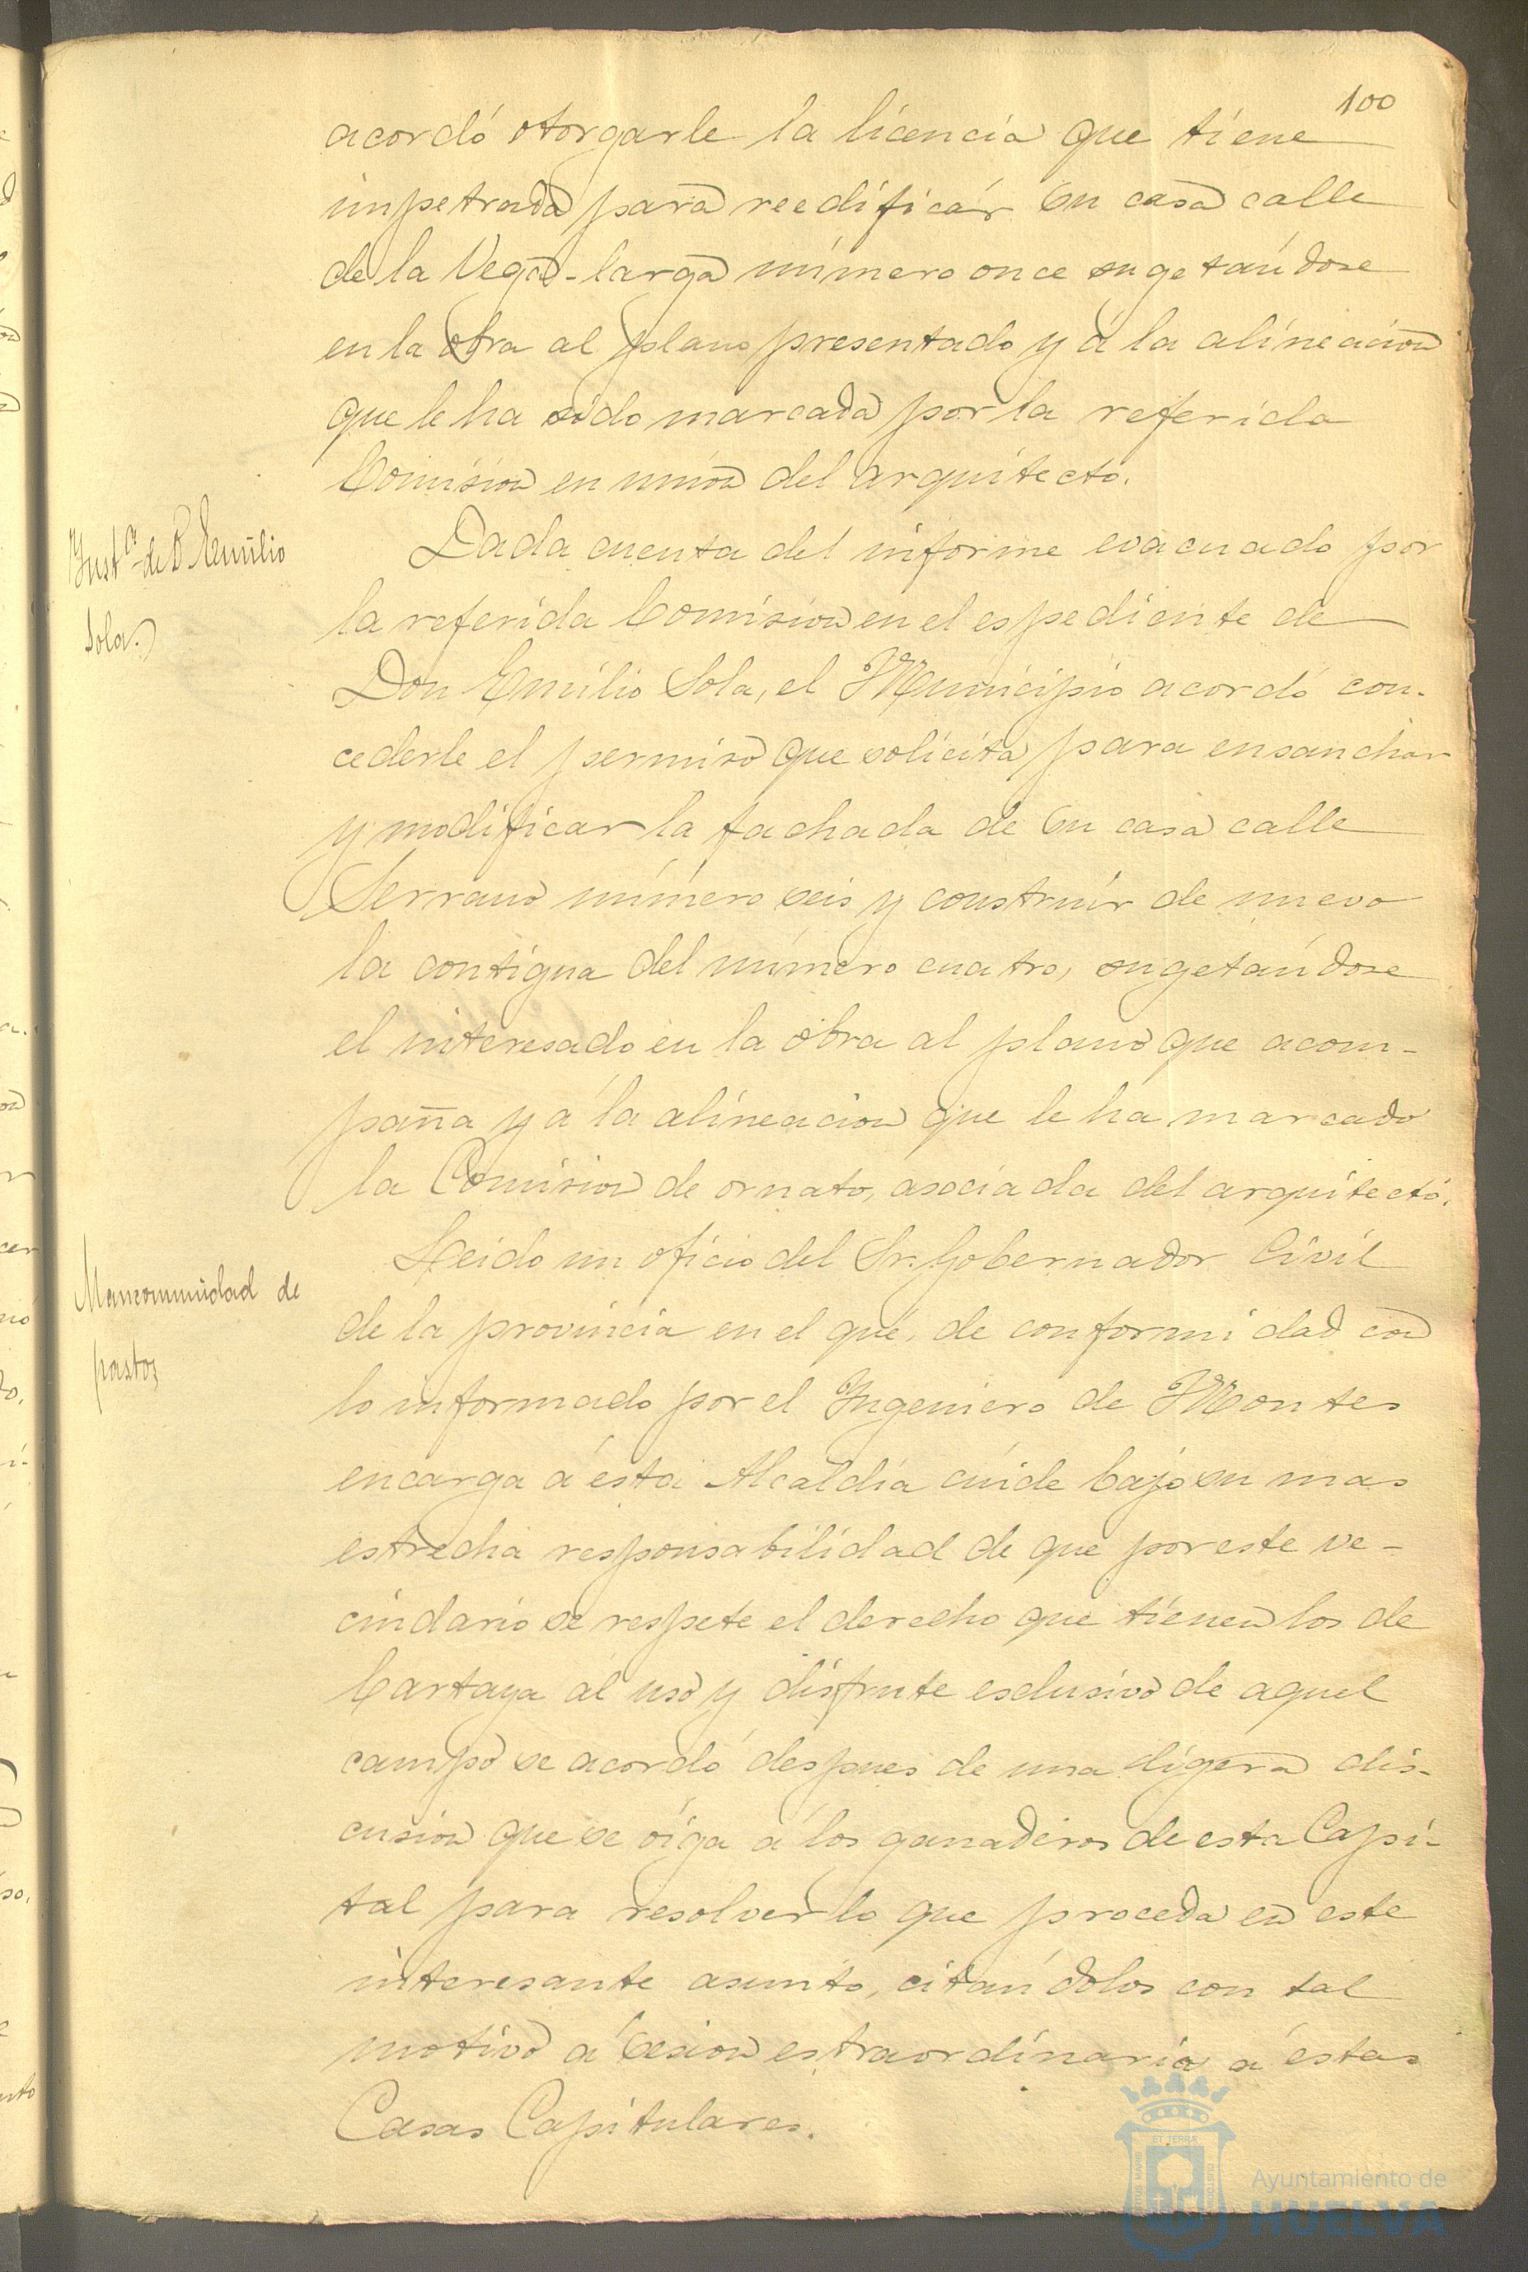 100
acordó otorgarle la licencia que tiene
impetrada para reedificár su casa calle
de la Vega-larga número once sugetándose
en la obra al plano presentado y á la alineacion
que le ha sido marcada por la referida
Comision en union del arquitecto.
Inst.ª de D. Emilio
Sola.
Dada cuenta del informe evacuado por
la referida Comision en el espediente de
Don Emilio Sola, el Municipio acordó con-
cederle el permiso que solicita para ensanchar
y modificar la fachada de su casa calle
Serrano número seis y construir de nuevo
la contigua del número cuatro, sugetándose
el interesado en la obra al plano que acom-
paña y á la alineacion que le ha marcado
la Comision de ornato, asociada del arquitecto.
Mancomunidad de
pastos
Leido un oficio del Sr. Gobernador Civil
de la provincia en el que, de conformidad con
lo informado por el Ingeniero de Montes
encarga á ésta Alcaldía cuide bajo su mas
estrecha responsabilidad de que por este ve-
cindario se respete el derecho que tienen los de
Cartaya al uso y disfrute esclusivo de aquel
campo se acordó despues de una ligera dis-
cusion que se oiga á los ganaderos de esta Capi-
tal para resolver lo que proceda en este
interesante asunto, citándolos con tal
motivo á sesion estraordinaria á éstas
Casas Capitulares.
Ayuntamiento de
HUELVA